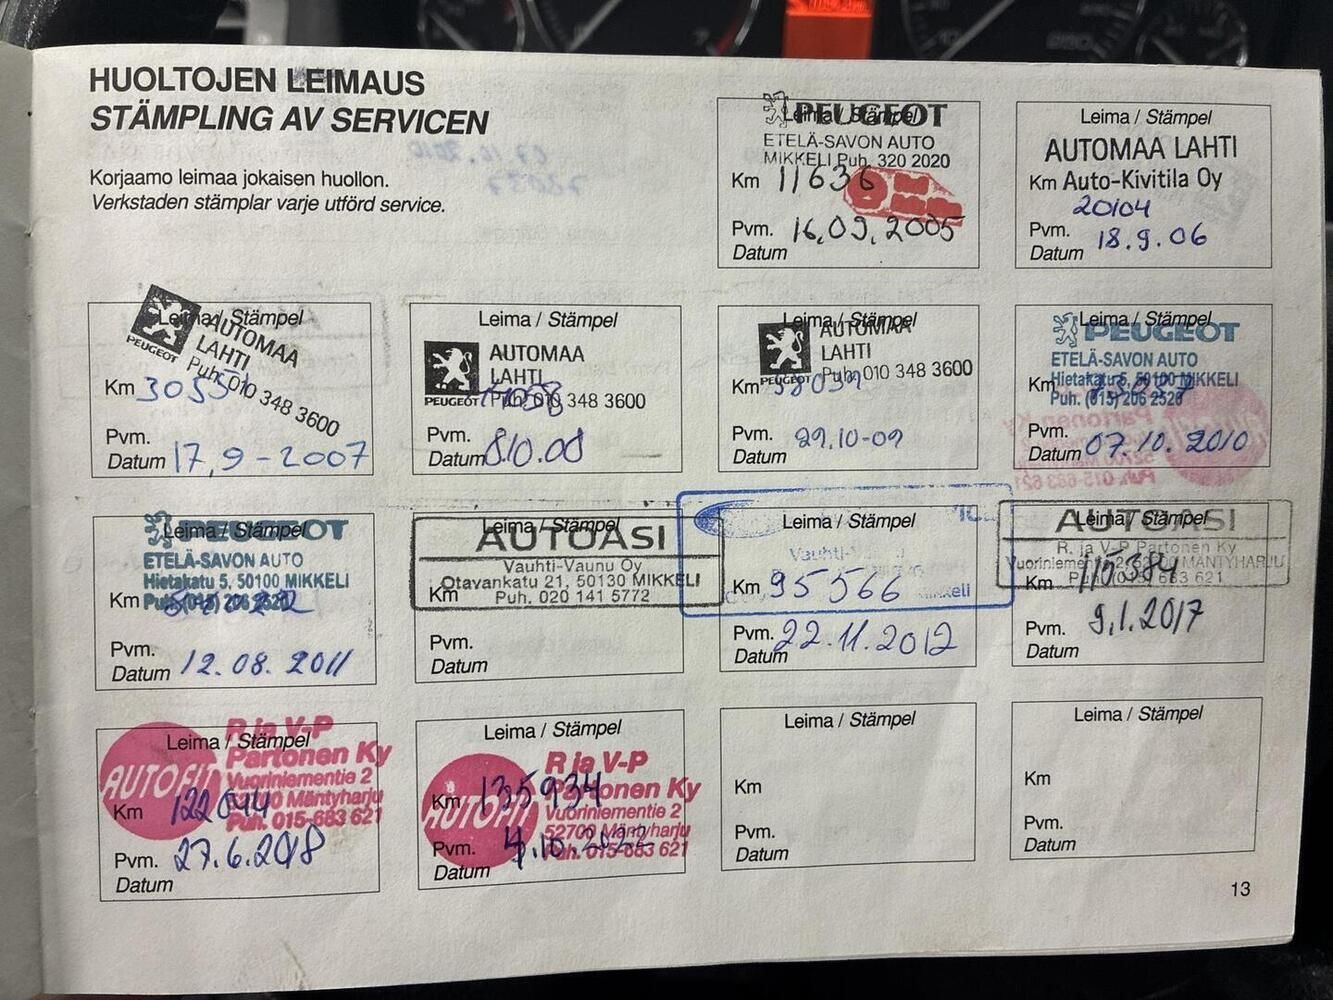 HUOLTOJEN LEIMAUS
STÄMPLING AV SERVICEN
Korjaamo leimaa jokaisen huollon.
Verkstaden stämplar varje utförd service.
Leima / Stämpel
PEUGEOT
ETELÄ-SAVON AUTO
MIKKELI Puh. 320 2020
Km 11636
Pvm. 16.09.2005
Datum
Leima / Stämpel
AUTOMAA LAHTI
Km Auto-Kivitila Oy
20104
Pvm. 18.9.06
Datum
Leima / Stämpel
PEUGEOT
AUTOMAA
LAHTI
Puh. 010 348 3600
Km
Pvm.
Datum 17,9-2007
Leima / Stämpel
PEUGEOT
AUTOMAA
LAHTI
Puh. 010 348 3600
Pvm.
Datum 8.10.08
Leima / Stämpel
PEUGEOT
AUTOMAA
LAHTI
Puh. 010 348 3600
Km
Pvm. 29.10-09
Datum
Leima / Stämpel
PEUGEOT
ETELÄ-SAVON AUTO
Hietakatu 5, 50100 MIKKELI
Puh. (015) 206 2520
Km
Pvm.
Datum 07.10.2010
Leima / Stämpel
PEUGEOT
ETELÄ-SAVON AUTO
Hietakatu 5, 50100 MIKKELI
Puh. (015) 206 2520
Km
Pvm.
Datum 12.08.2011
Leima / Stämpel
AUTOASI
Vauhti-Vaunu Oy
Otavankatu 21, 50130 MIKKELI
Puh. 020 141 5772
Km
Pvm.
Datum
Leima / Stämpel
Km 95566
Pvm. 22.11.2012
Datum
Leima / Stämpel
AUTOASI
R. ja V-P Partonen Ky
Vuoriniementie 2, 52700 MÄNTYHARJU
Puh. 015 683 621
Km
Pvm. 9.1.2017
Datum
Leima / Stämpel
AUTOFIT
R ja V-P
Partonen Ky
Vuoriniementie 2
52700 Mäntyharju
Puh. 015-683 621
Km 122044
Pvm. 27.6.2018
Datum
Leima / Stämpel
AUTOFIT
R ja V-P
Partonen Ky
Vuoriniementie 2
52700 Mäntyharju
Puh. 015-683 621
Km 135934
Pvm. 4.10.2022
Datum
Leima / Stämpel
Km
Pvm.
Datum
Leima / Stämpel
Km
Pvm.
Datum
13